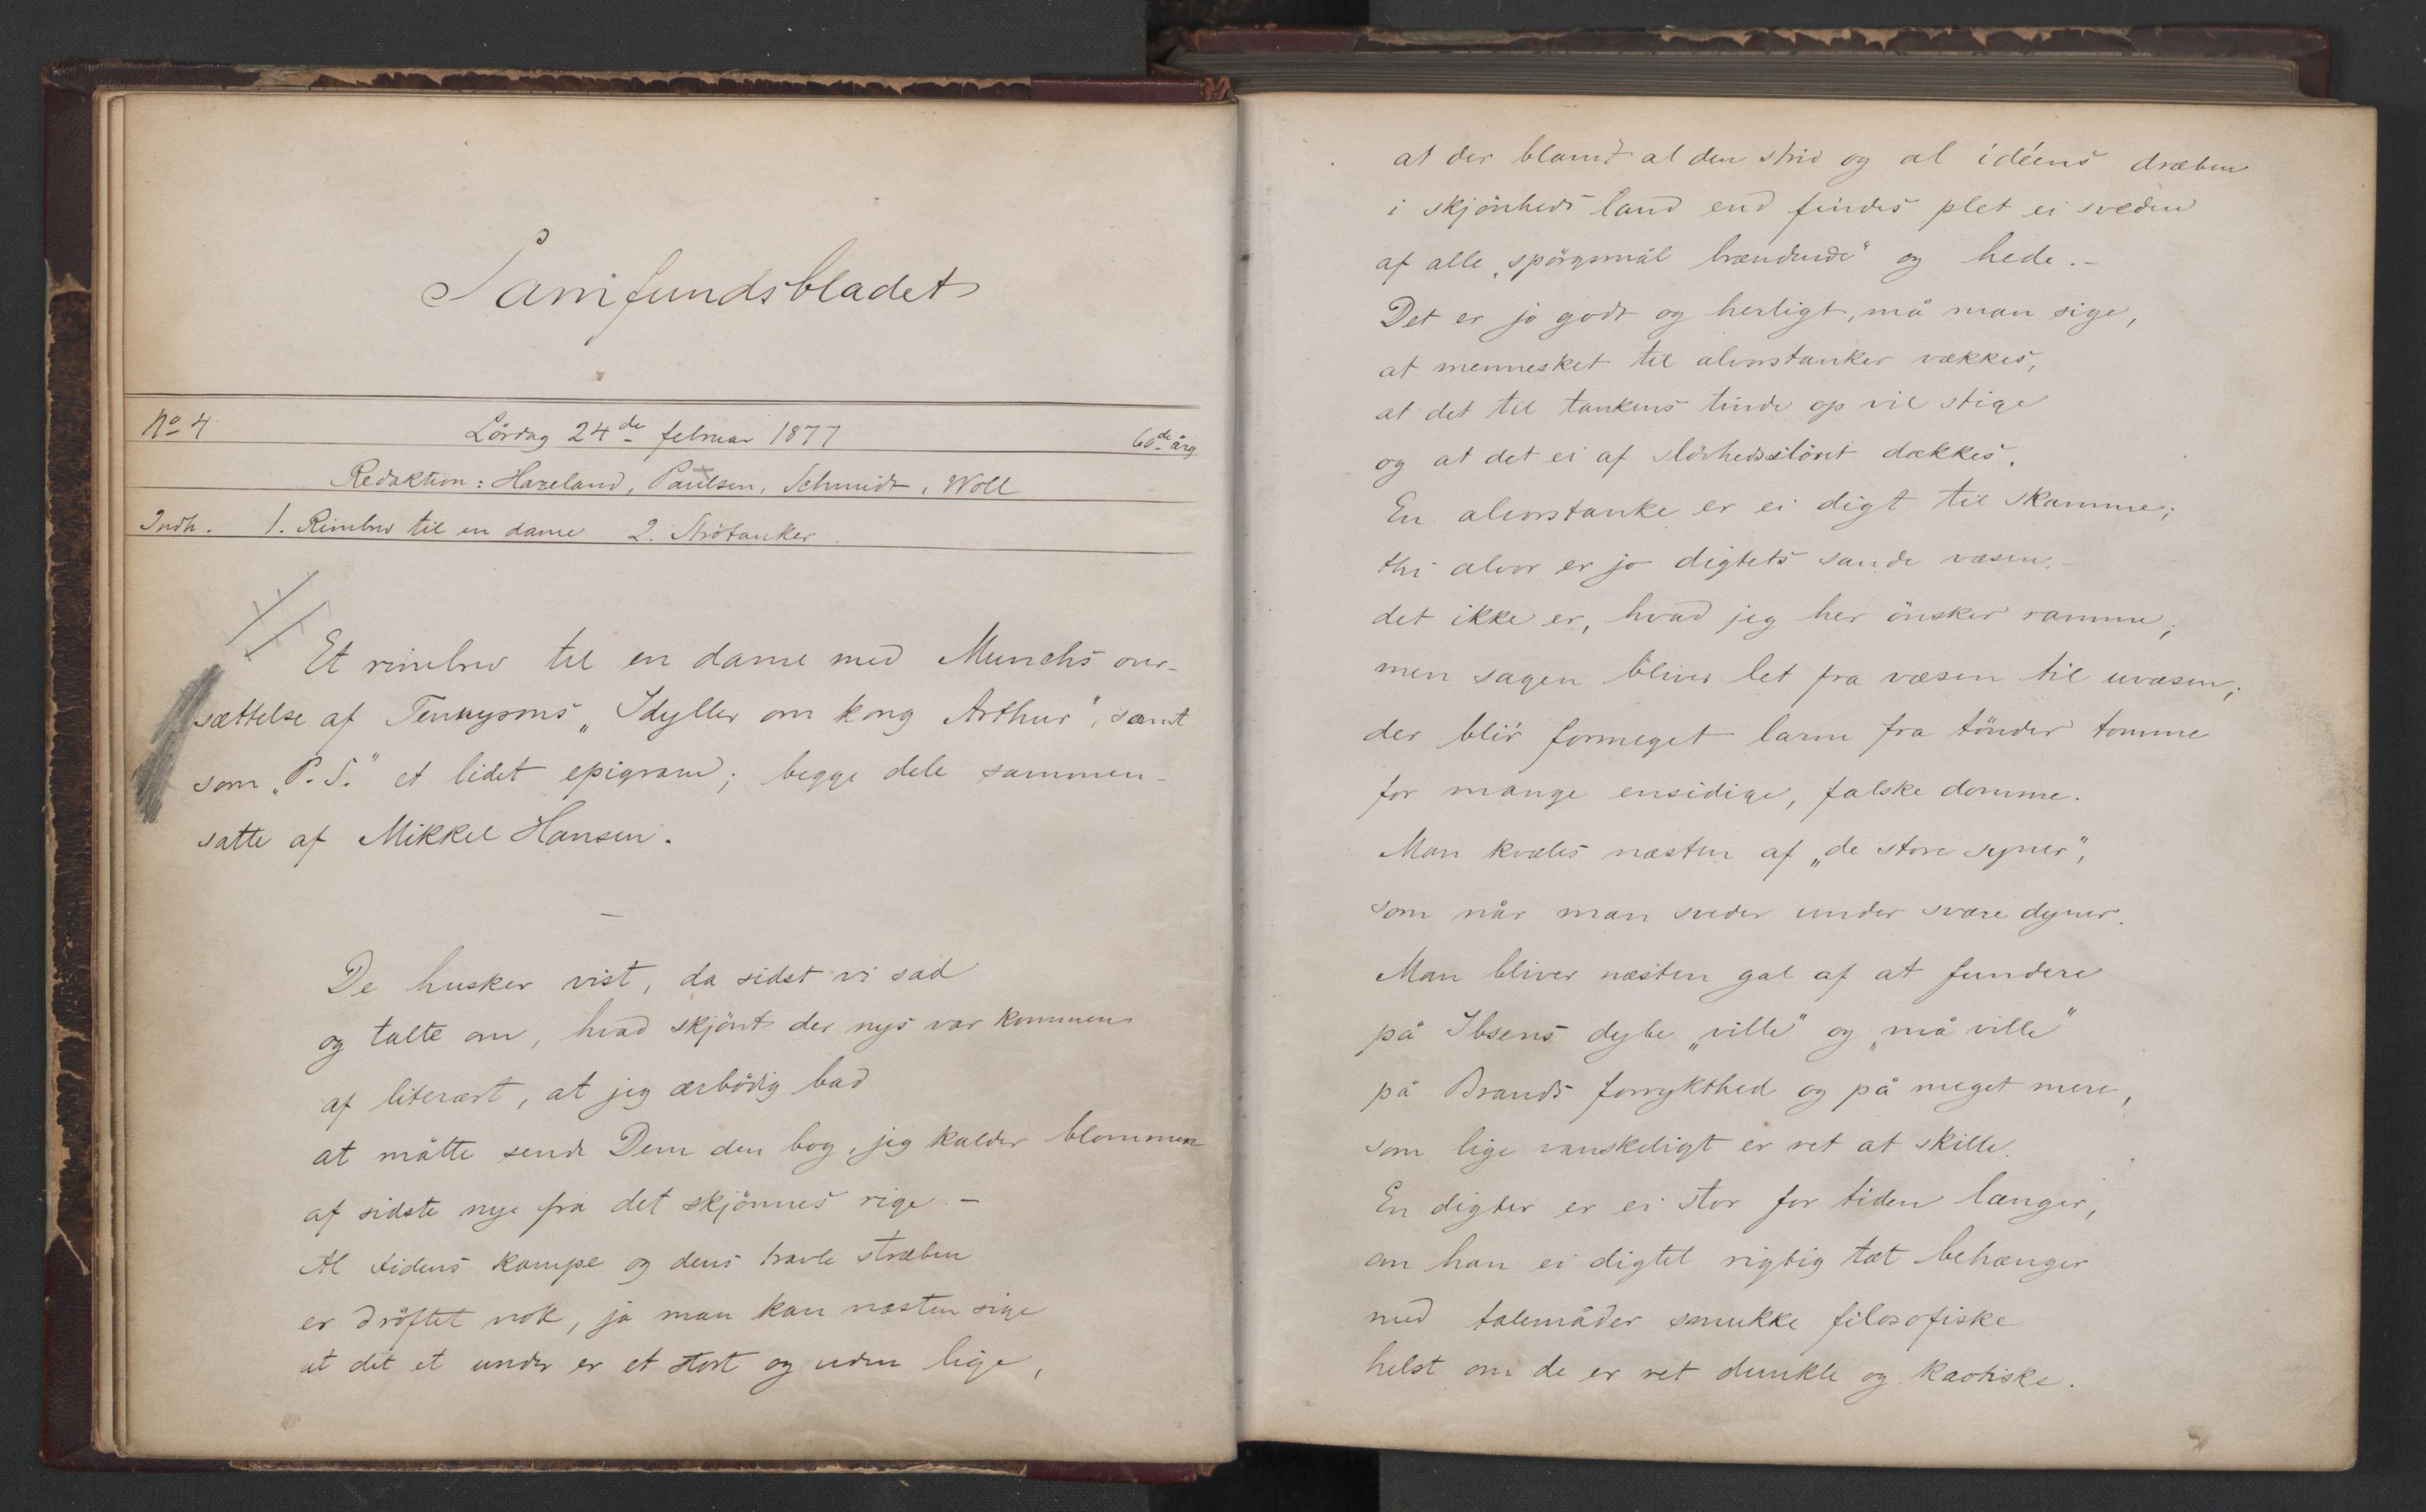 Samfundsbladet
No 4 Lördag 24de februar 1877 60de årg
Redaktion: Hazeland, Paulsen, Schmidt, Woll
Indh. 1. Rimbrev til en dame 2. Strötanker.
1/
Et rimbrev til en dame med Munchs over-
sættelse af Tennysons „Idyller om kong Arthur“, samt
som „P. S.“ et lidet epigram; begge dele sammen-
satte af Mikkel Hansen.
—
De husker vist, da sidst vi sad
og talte om, hvad skjönt der nys var kommen
af literært, at jeg ærbödig bad
at måtte sende Dem den bog, jeg kalder blommen
af sidste nye fra det skjönnes rige. —
Al tidens kampe og dens travle stræben
er dröftet nok, ja man kan næsten sige
at det et under er et stort og uden lige,
at der blandt al den strid og al idéens dræben
i skjönheds land end findes plet ei sveden
af alle „spörgsmål brændende“ og hede. —
Det er jo godt og herligt, må man sige,
at mennesket til alvorstanker vækkes,
at det til tankens tinde op vil stige
og at det ei af slövhedsslöret dækkes.
En alvorstanke er ei digt til skamme;
thi alvor er jo digtets sande væsen. —
det ikke er, hvad jeg her önsker ramme;
men sagen bliver let fra væsen til uvæsen;
der blir formeget larm fra tönder tomme
for mange ensidige, falske domme.
Man kvæles næsten af „de store syner“,
som når man sveder under svære dyner.
Man bliver næsten gal af at fundere
på Ibsens dybe „ville“ og „må ville“
på Brands forrykthed og på meget mere,
som lige vanskeligt er ret at skille.
En digter er ei stor for tiden længer,
om han ei digtet rigtig tæt behænger
med talemåder smukke filosofiske
helst om de er ret dunkle og kaotiske.